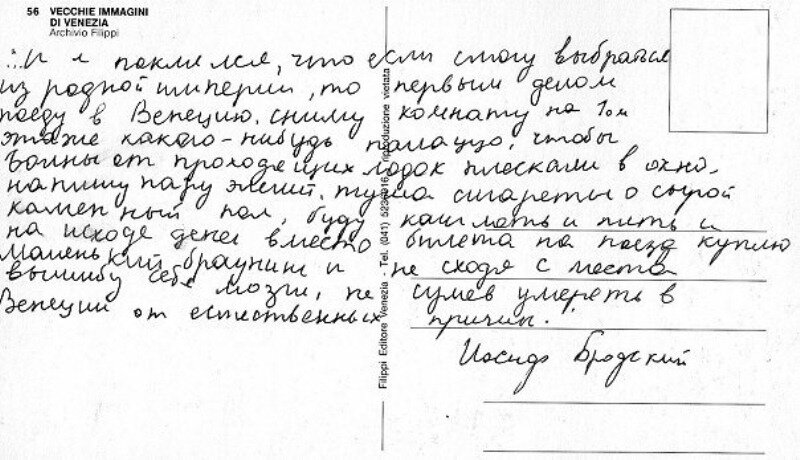 56 VECCHIE IMMAGINI
DI VENEZIA
Archivio Filippi
...И я поклялся, что если смогу выбраться
из родной империи, то первым делом
поеду в Венецию, сниму комнату на 1ом
этаже какого-нибудь палаццо, чтобы
волны от проходящих лодок плескали в окно,
напишу пару элегий, туша сигареты о сырой
каменный пол, буду кашлять и пить и
на исходе денег вместо билета на поезд куплю
маленький браунинг и не сходя с места
вышибу себе мозги, не сумев умереть в
Венеции от естественных причин.
Иосиф Бродский
Filippi Editore Venezia - Tel. (041) 5236916 riproduzione vietata